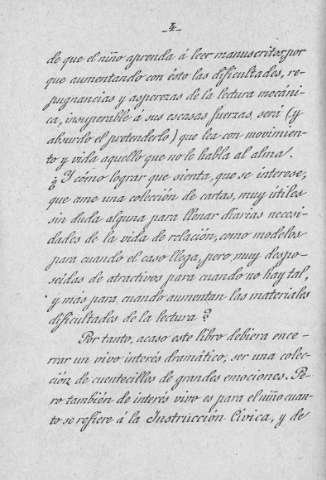 -4-
de que el niño aprenda á leer manuscritos, por
que aumentando con ésto las dificultades, re-
pugnancias y asperezas de la lectura mecáni-
ca, insuperable á sus escasas fuerzas, será (y
absurdo el pretenderlo) que lea con movimien-
to y vida aquello que no le habla al alma.
¿Y cómo lograr que sienta, que se interese,
que ame una colección de cartas, muy útiles
sin duda alguna para llenar diarias necesi-
dades de la vida de relación, como modelos
para cuando el caso llega, pero muy despo-
seidas de atractivos para cuando no hay tal,
y más para cuando aumentan las materiales
dificultades de la lectura?
Por tanto, acaso este libro debiera ence-
rrar un vivo interés dramático; ser una colec-
ción de cuentecillos de grandes emociones. Pe-
ro también de interés vivo es para el niño cuan-
to se refiere á la Instrucción Cívica, y de